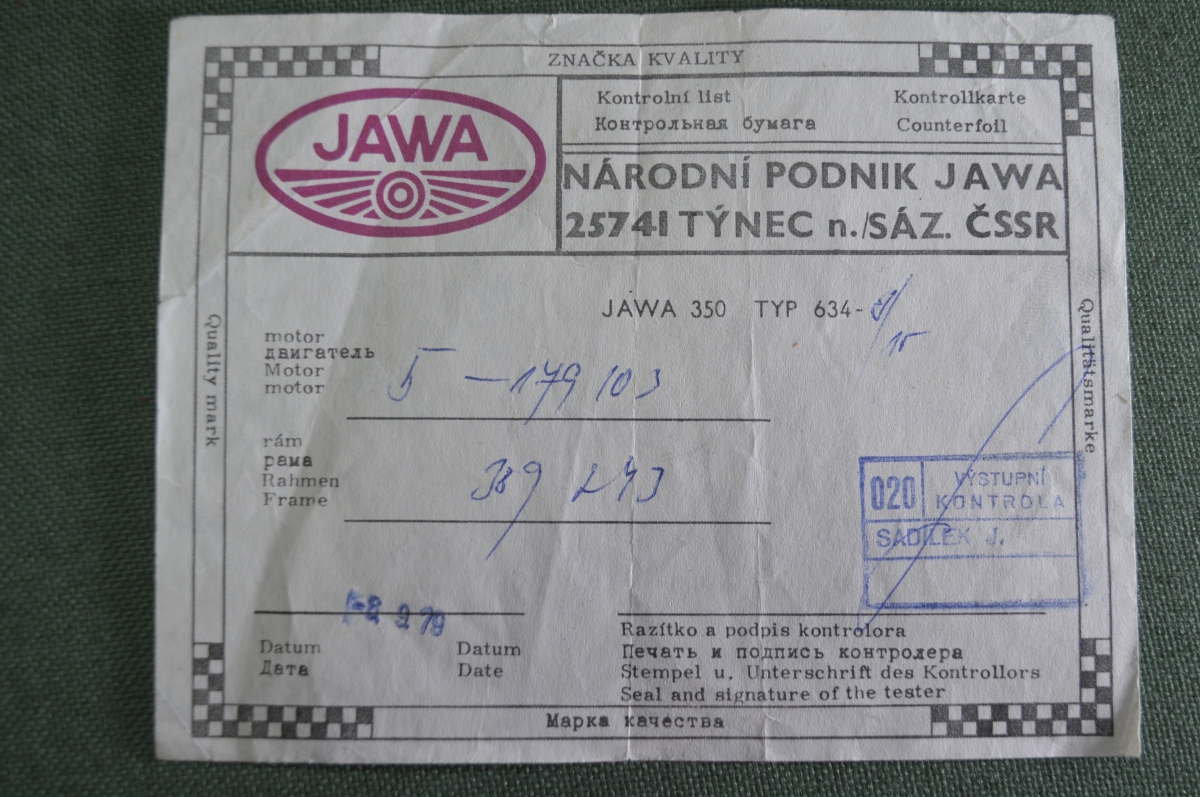 ZNAČKA KVALITY
JAWA
Kontrolní list
Kontrollkarte
Контрольная бумага
Counterfoil
NÁRODNÍ PODNIK JAWA
25741 TÝNEC n./SÁZ. ČSSR
Quality mark
Qualitätsmarke
JAWA 350 TYP 634-
motor
двигатель
Motor
motor
5 - 179 103
rám
рама
Rahmen
Frame
389 243
020
VÝSTUPNÍ
KONTROLA
SADÍLEK J.
9. 79
Datum
Datum
Дата
Date
Razítko a podpis kontrolora
Печать и подпись контролера
Stempel u. Unterschrift des Kontrollors
Seal and signature of the tester
Марка качества